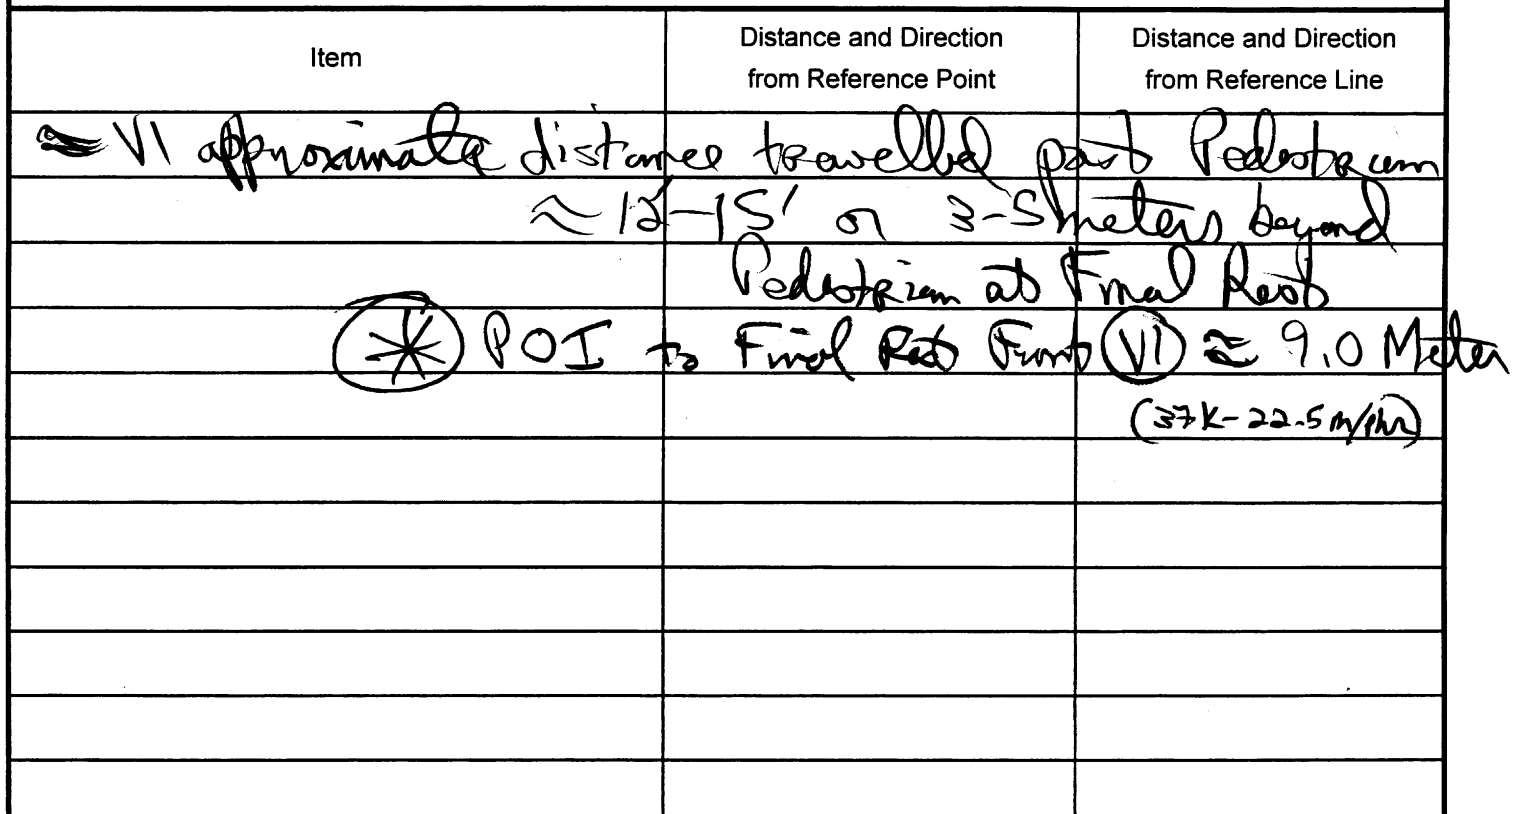 Item
Distance and Direction
from Reference Point
Distance and Direction
from Reference Line
V1 approximate distance travelled past Pedestrian
≈ 12'-15' or 3-5 meters beyond
Pedestrian at Final Rest
* POI to Final Rest Front V1 ≈ 9.0 Meter
(37K-22.5 m/phr)